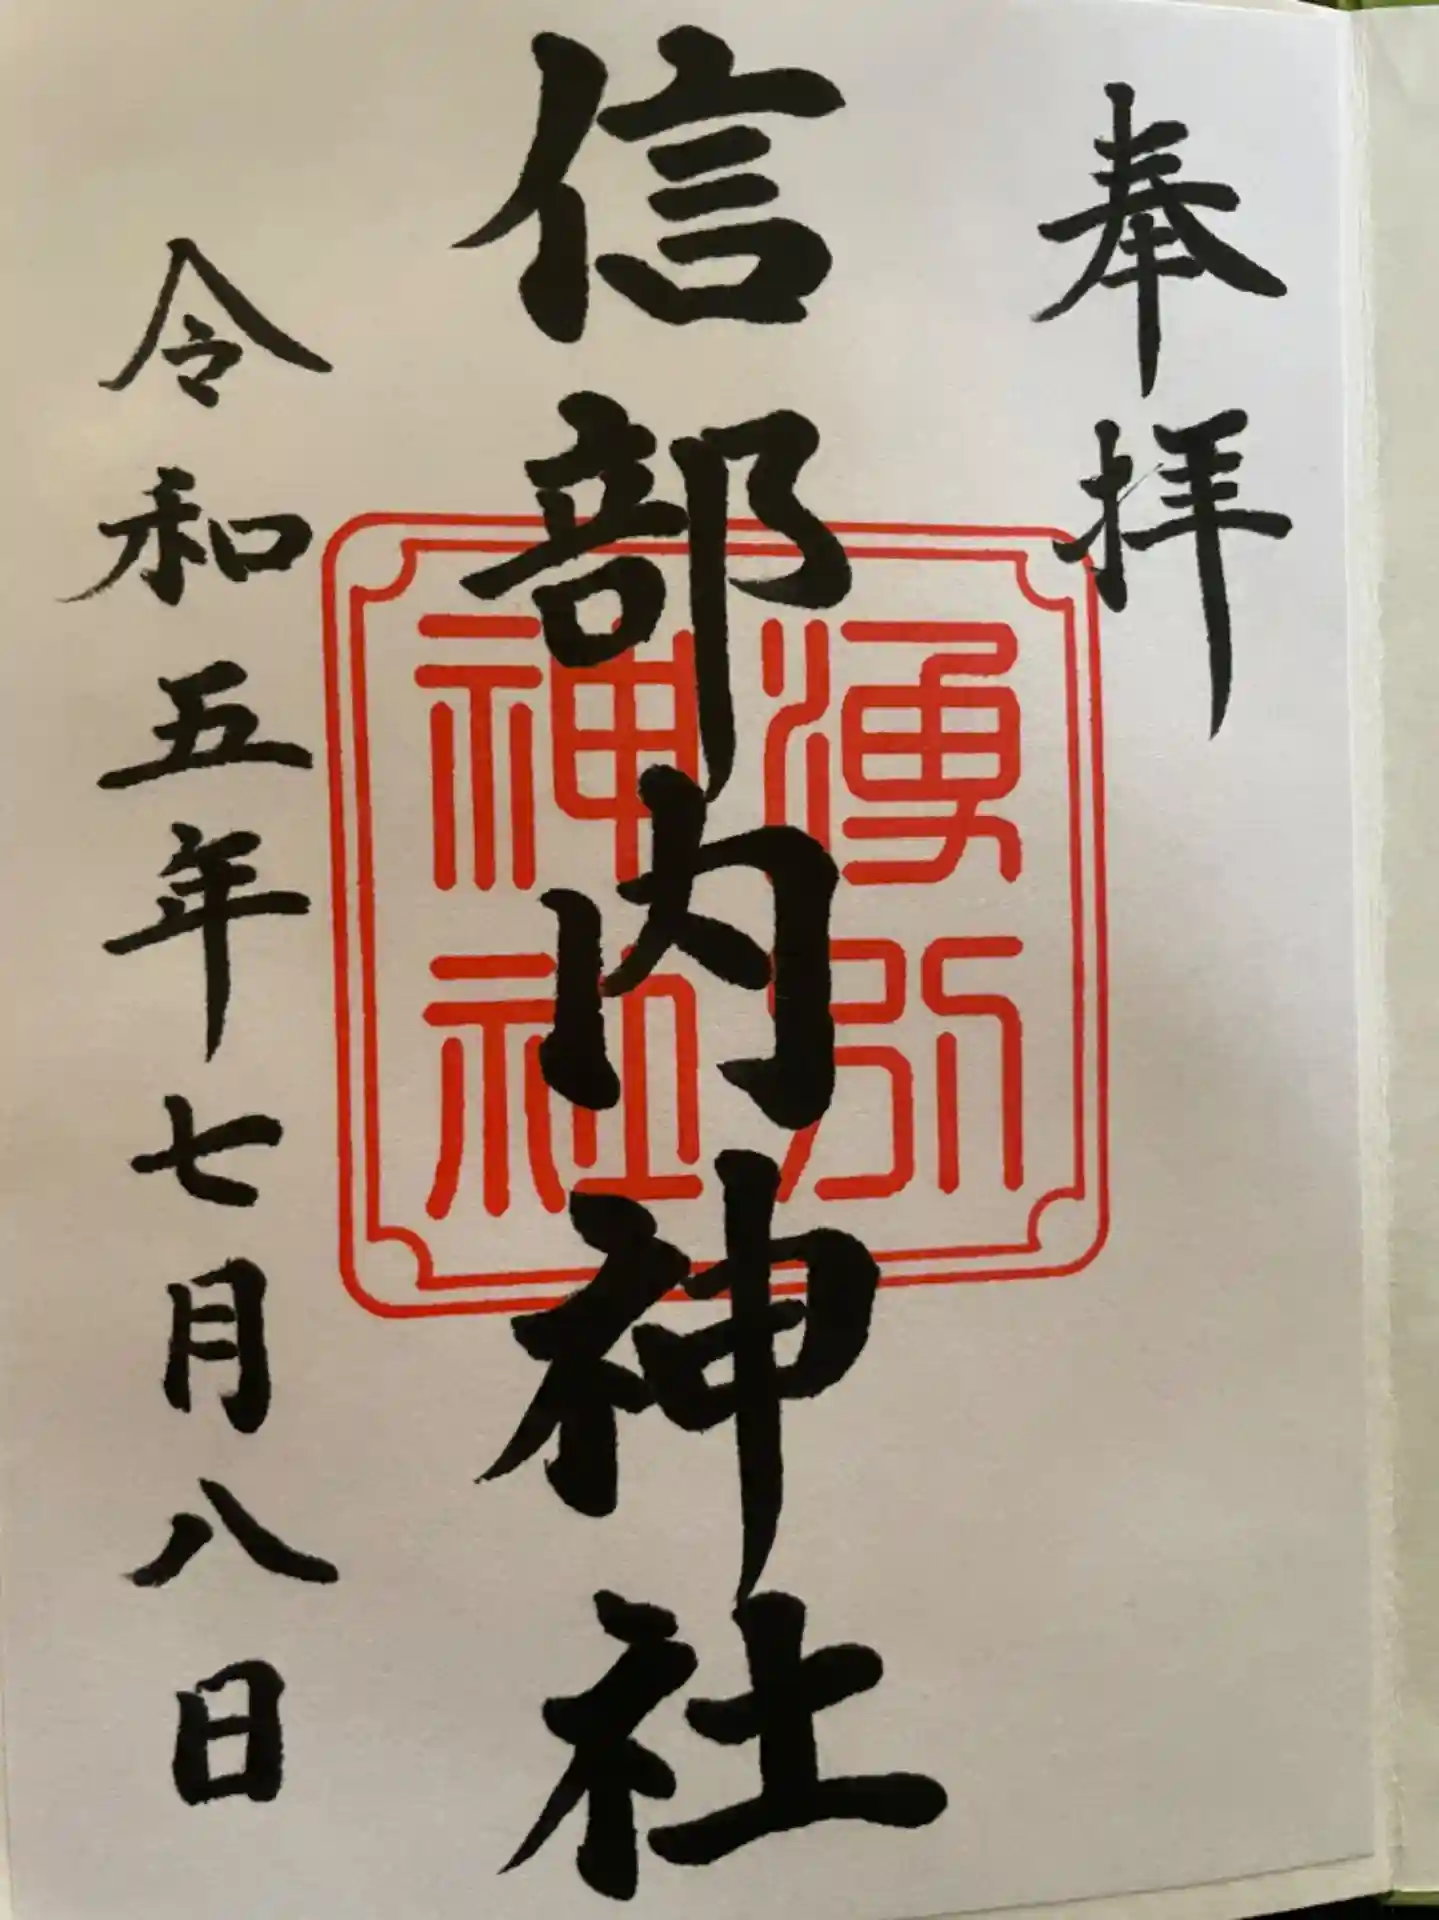 奉拝
信部内神社
湧別
神社
令和五年七月八日